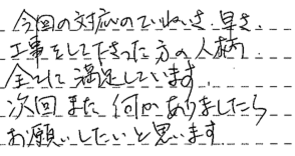 今回の対応のていねいさ、早さ、
工事をして下さった方の人柄
全てに満足しています。
次回また何かありましたら
お願いしたいと思います